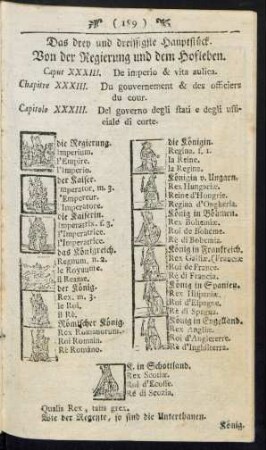 ( 189 )
Das drey und dreissigste Hauptstück.
Von der Regierung und dem Hofleben.
Caput XXXIII. De imperio & vita aulica.
Chapitre XXXIII. Du gouvernement & des officiers
du cour.
Capitolo XXXIII. Del governo degli stati e degli uffi-
ciale di corte.
die Regierung.
Imperium.
l'Empire.
l'Imperio.
der Kaiser.
Imperator, m. 3.
l'Empereur.
Imperatore.
die Kaiserin.
Imperatrix, f. 3.
l'Imperatrice.
l'Imperatrice.
das Königreich.
Regnum, n. 2.
le Royaume.
il Reame.
der König.
Rex, m. 3.
le Roi.
il Rè.
Römischer König.
Rex Romanorum.
Roi Romain.
Rè Romano.
die Königin.
Regina, f. 1.
la Reine.
la Regina.
Königin v. Ungarn.
Rex Hungariæ.
Reine d'Hongrie.
Regina d'Ongheria.
König in Böhmen.
Rex Bohemiæ.
Roi de Bohéme.
Rè di Bohemia.
König in Frankreich.
Rex Galliæ,
Roi de France.
Rè di Francia.
König in Spanien.
Rex Hispaniæ.
Roi d'Espagne.
Rè di Spagna.
König in Engelland.
Rex Angliæ.
Roi d'Angleterre.
Rè d'Inghilterra.
K. in Schottland.
Rex Scotiæ.
Roi d'Ecosse.
Rè di Scozia.
Qualis Rex, talis grex.
Wie der Regente, so sind die Unterthanen.
König.